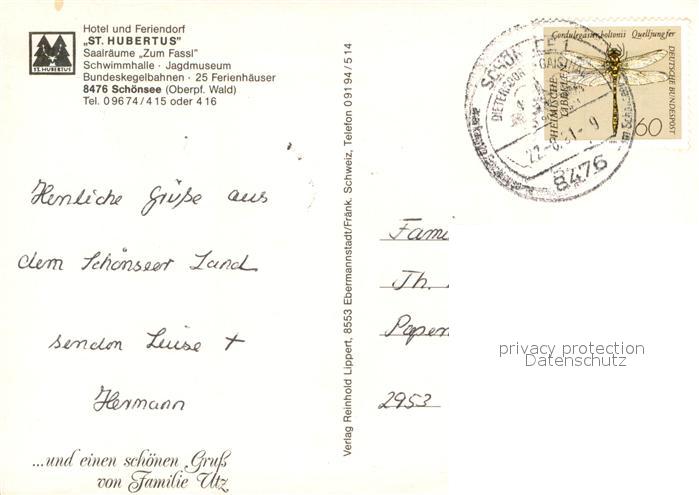 Hotel und Feriendorf
„ST. HUBERTUS"
Saalräume „Zum Fassl"
Schwimmhalle · Jagdmuseum
Bundeskegelbahnen · 25 Ferienhäuser
8476 Schönsee (Oberpf. Wald)
Tel. 0 96 74 / 4 15 oder 4 16
ST. HUBERTUS
Herzliche Grüße aus
dem Schönseer Land
senden Luise +
Hermann
...und einen schönen Gruß
von Familie Utz
Verlag Reinhold Lippert, 8553 Ebermannstadt/Fränk. Schweiz, Telefon 0 91 94 / 5 14
Cordulegaster boltonii Quelljungfer
HEIMISCHE LIBELLEN
DEUTSCHE BUNDESPOST
60
8476
Fami
Th.
Papen
2953
privacy protection
Datenschutz